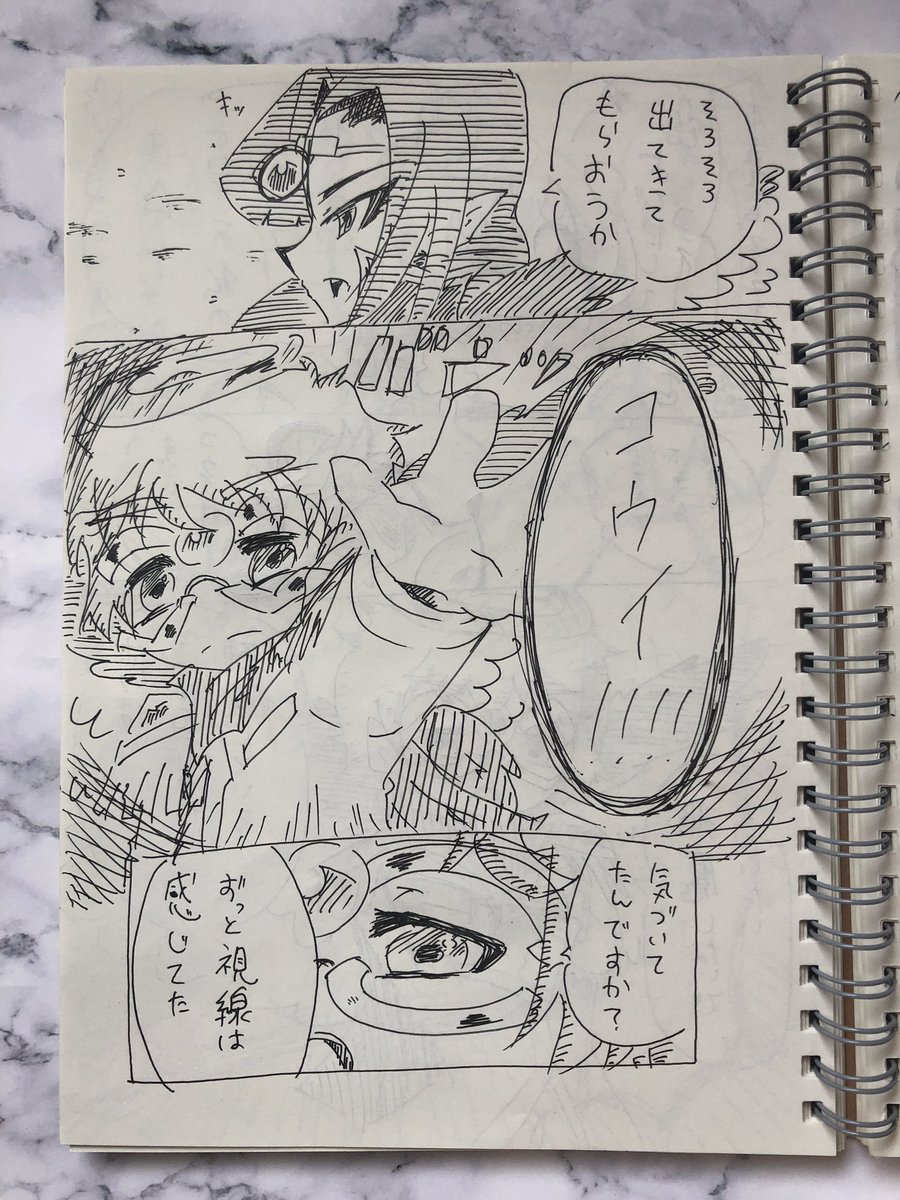 そろそろ
出てきて
もらおうか
キッ
コウイ!!!!!
気づいて
たんですか?
ずっと視線は
感じてた